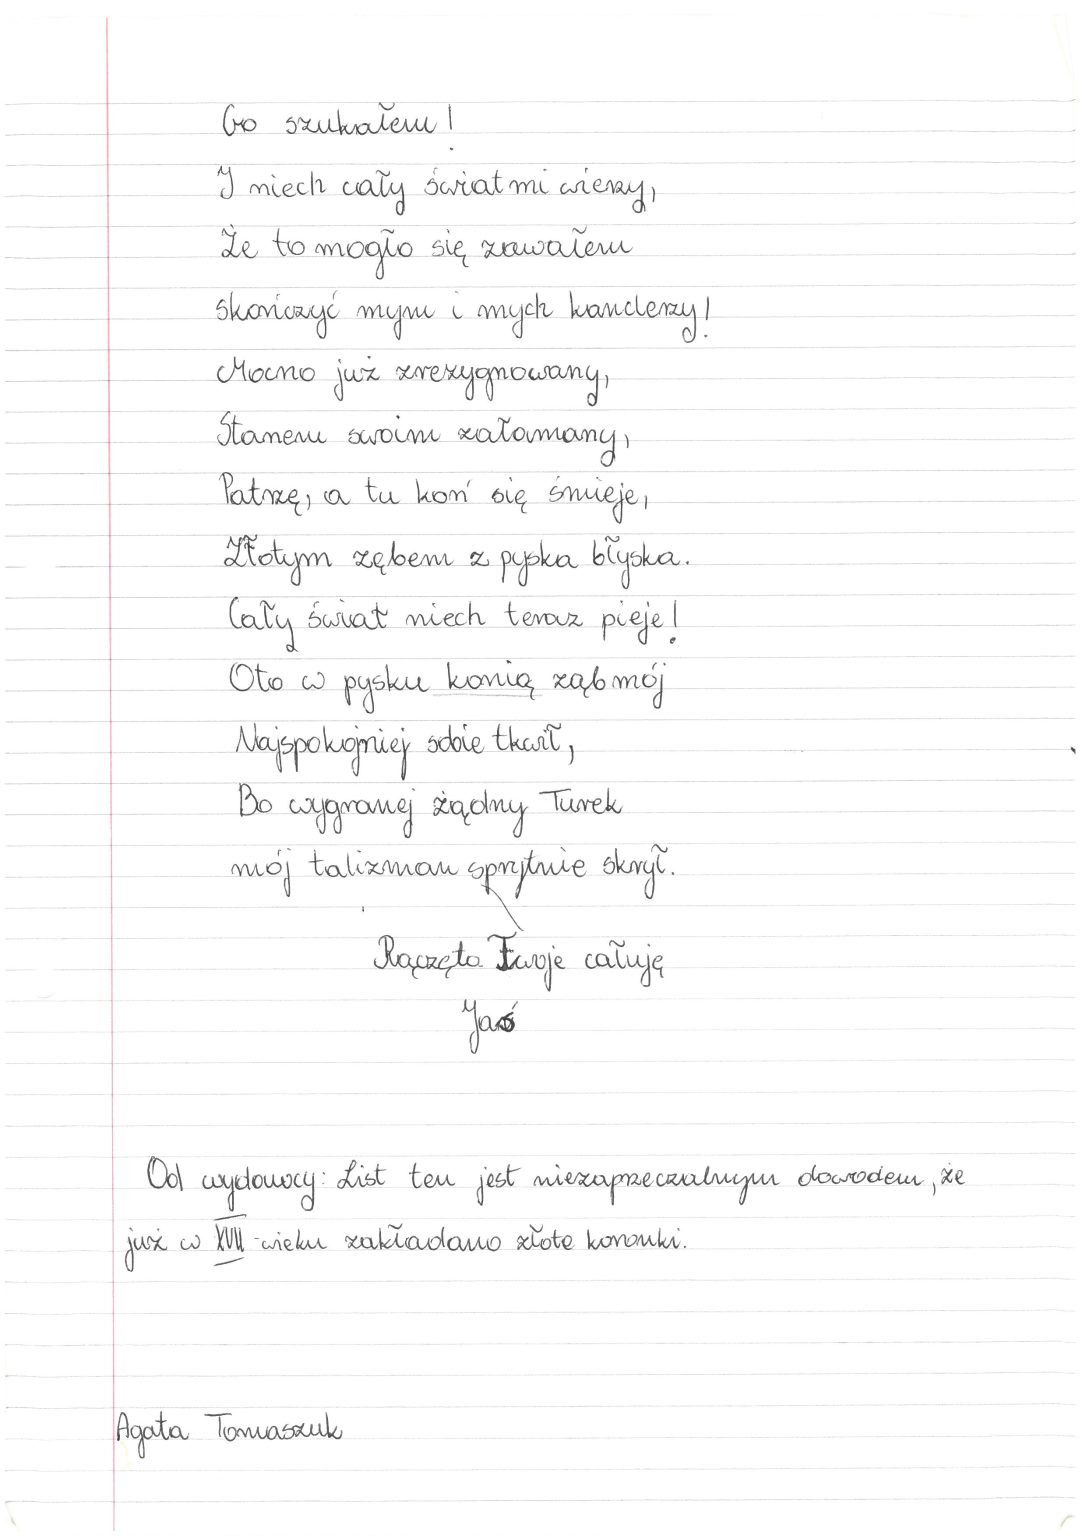 Go szukałem!
I niech cały świat mi wierzy,
Że to mogło się zawałem
skończyć mym i mych kanclerzy!
Mocno już zrezygnowany,
Stanem swoim załamany,
Patrzę, a tu koń się śmieje,
Złotym zębem z pyska błyska.
Cały świat niech teraz pieje!
Oto w pysku konią ząb mój
Najspokojniej sobie tkwił,
Bo wygranej żądny Turek
mój talizman sprytnie skrył.
Rączęta Twoje całuję
Jaś
Od wydawcy: List ten jest niezaprzeczalnym dowodem, że
już w XVII-wieku zakładano złote koronki.
Agata Tomaszuk